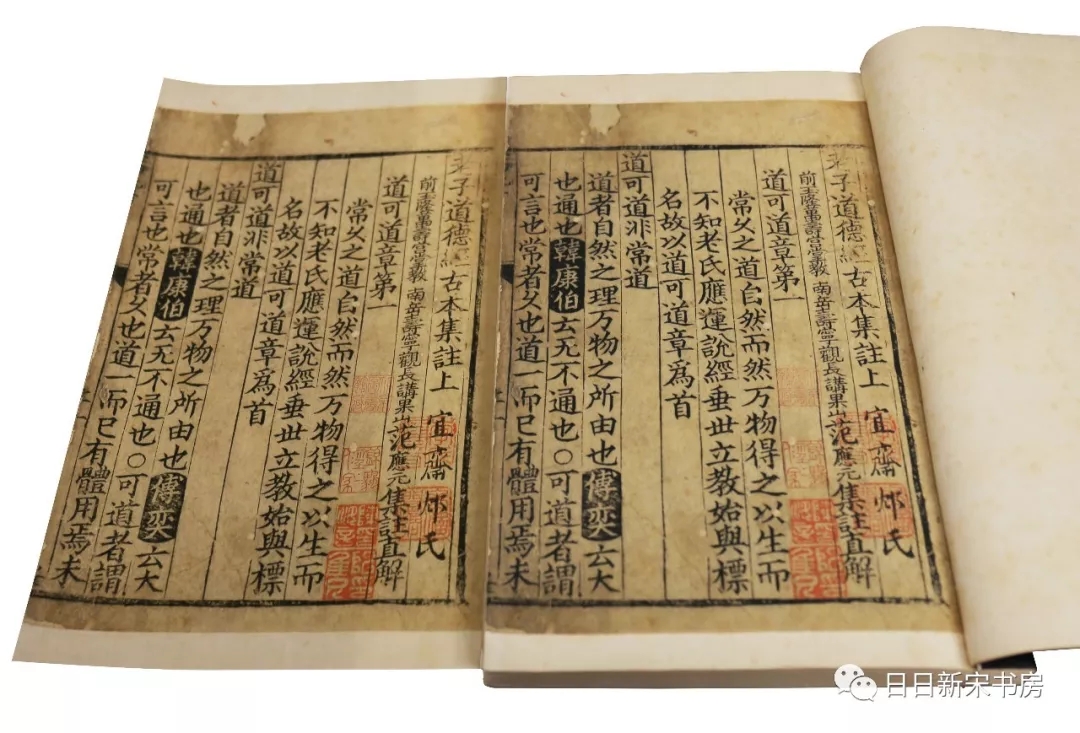 老子道德經古本集註上 宜齋 氏
前玉隆萬壽宮掌教 南岳壽寧觀長講果山范應元集註直解
道可道章第一
常久之道自然而然万物得之以生而
不知老氏應運說經垂世立教始與標
名故以道可道章爲首
道可道非常道
道者自然之理万物之所由也傅奕云大
也通也韓康伯云无不通也○可道者謂
可言也常者久也道一而已有體用焉未
老子道德經古本集註上 宜齋 氏
前玉隆萬壽宮掌教 南岳壽寧觀長講果山范應元集註直解
道可道章第一
常久之道自然而然万物得之以生而
不知老氏應運說經垂世立教始與標
名故以道可道章爲首
道可道非常道
道者自然之理万物之所由也傅奕云大
也通也韓康伯云无不通也○可道者謂
可言也常者久也道一而已有體用焉未
日日新宋书房